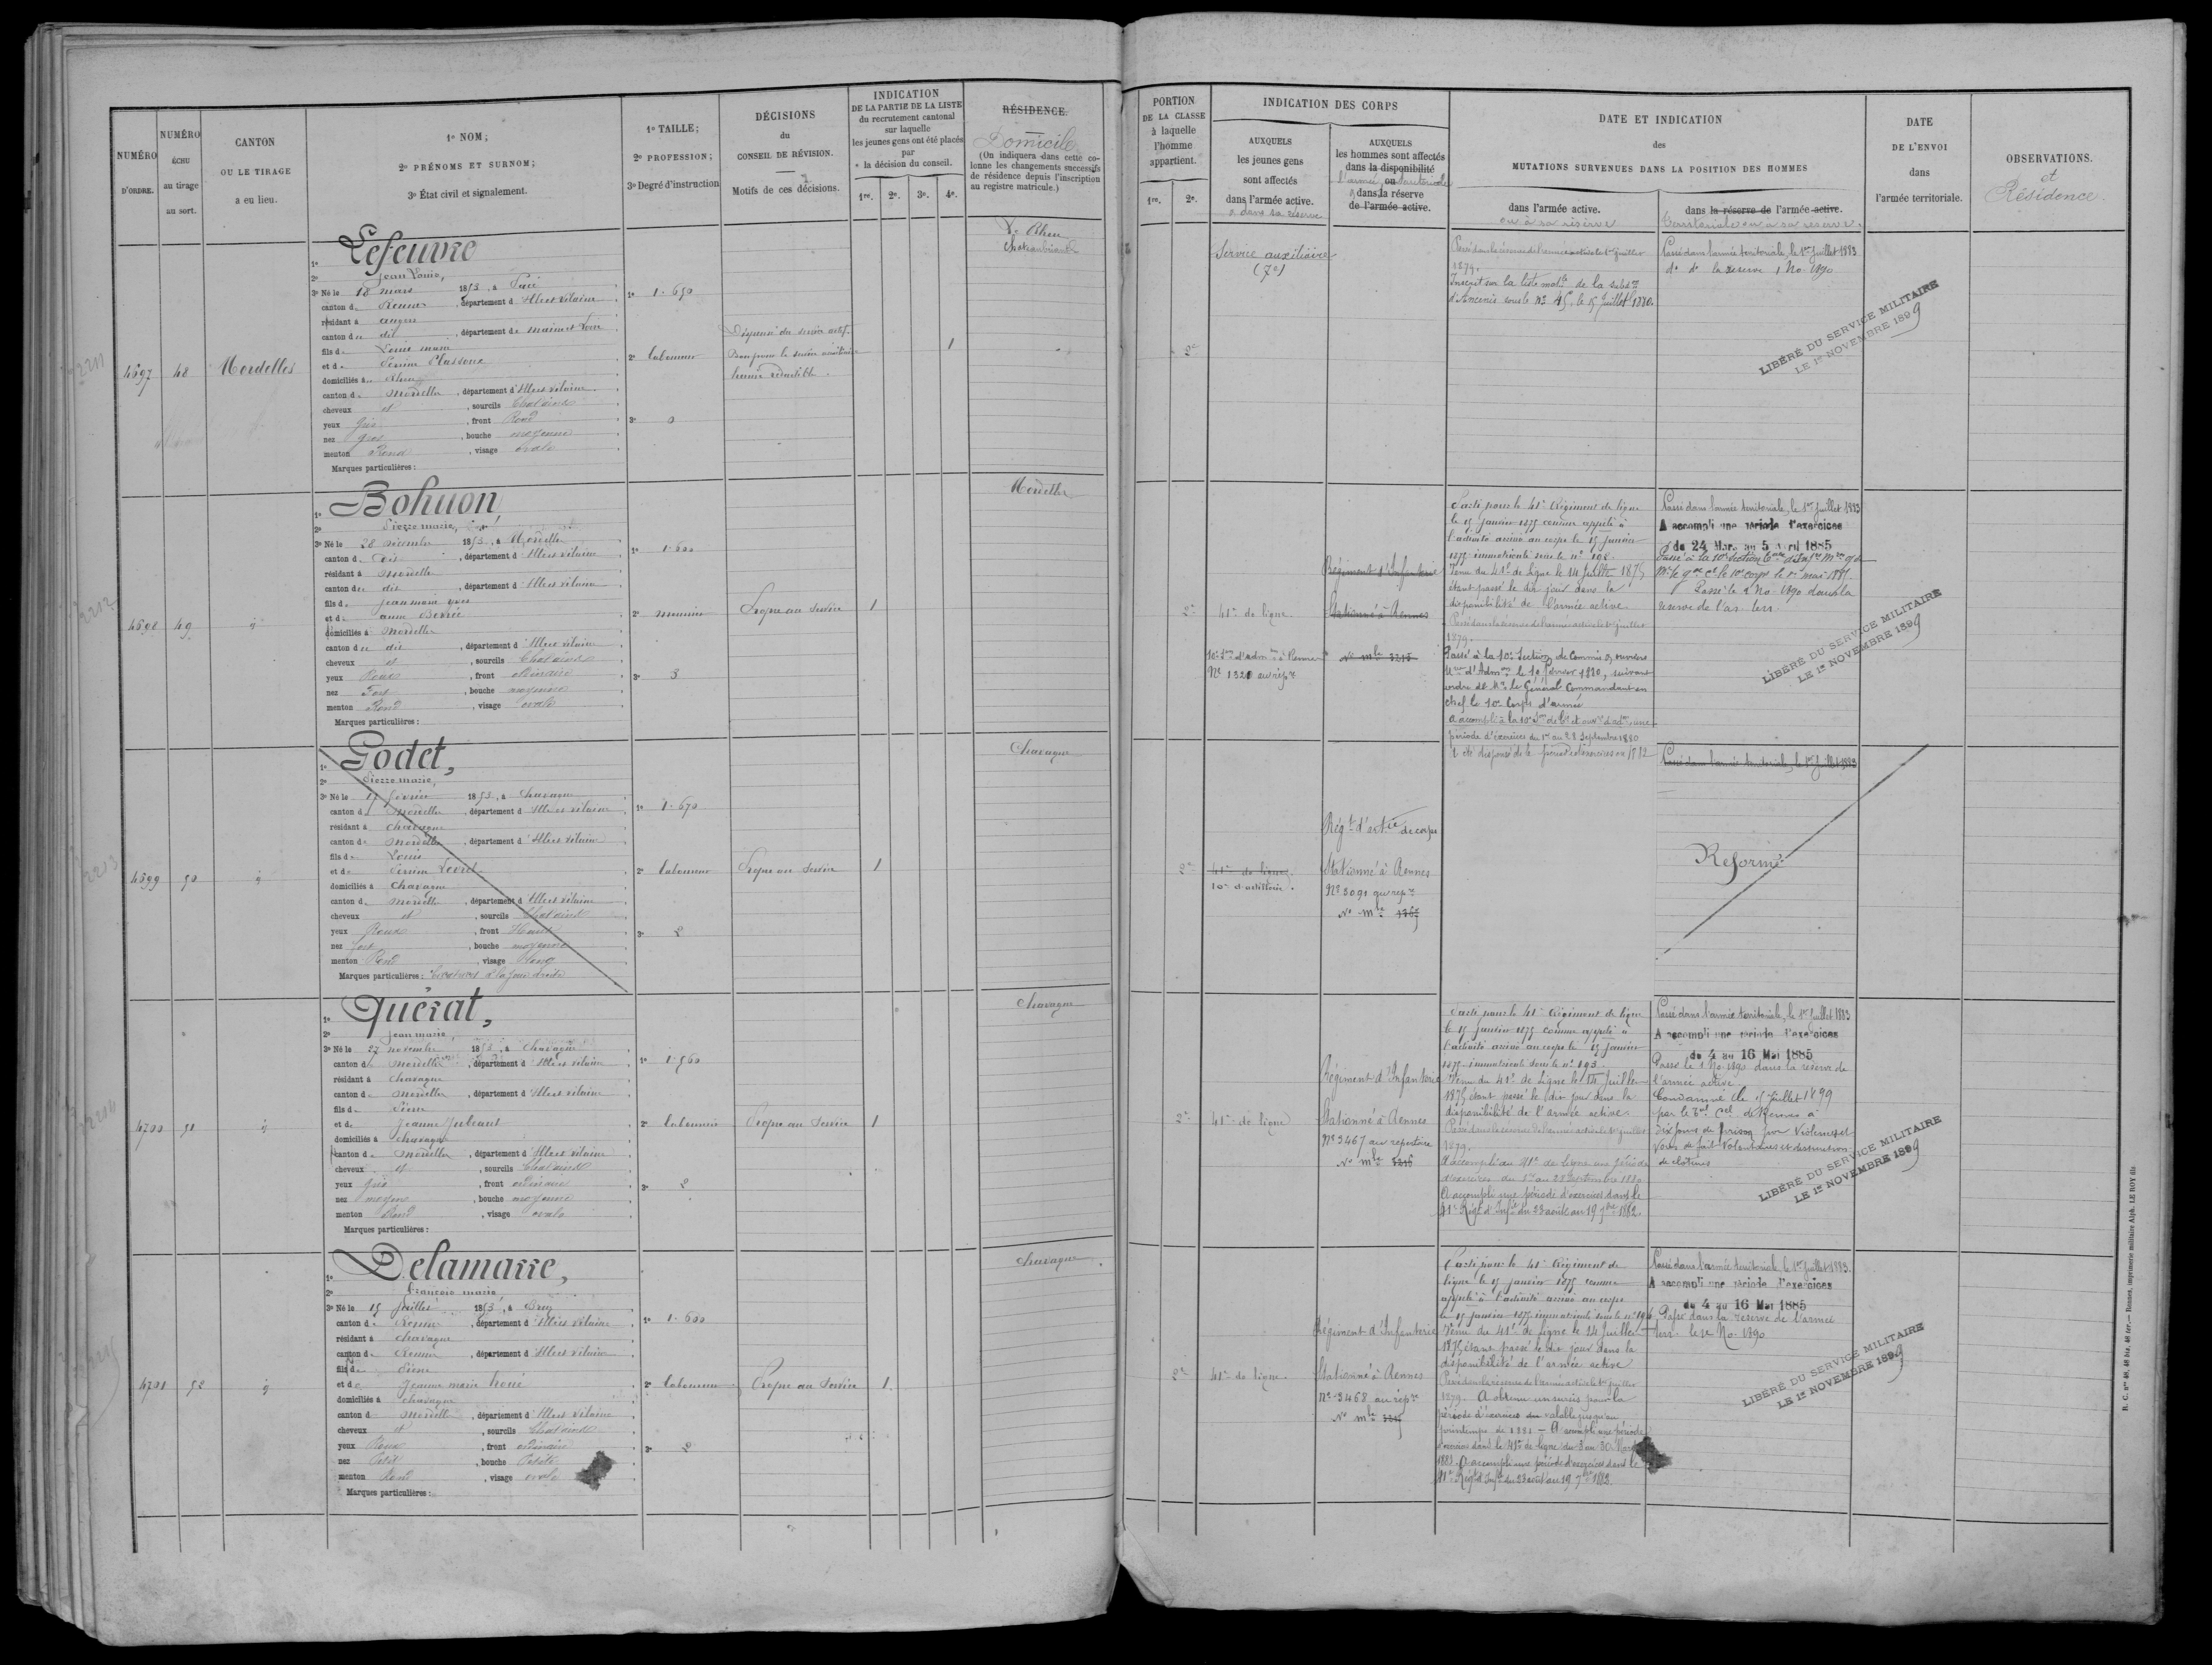 NUMÉRO
D'ORDRE.
NUMÉRO
ÉCHU
au tirage
au sort.
CANTON
OU LE TIRAGE
a eu lieu.
1º NOM;
2º PRÉNOMS ET SURNOM;
3º État civil et signalement.
1º TAILLE;
2º PROFESSION;
3º Degré d'instruction
DÉCISIONS
du
CONSEIL DE RÉVISION.
Motifs de ces décisions.
INDICATION
DE LA PARTIE DE LA LISTE
du recrutement cantonal
sur laquelle
les jeunes gens ont été placés
par
la décision du conseil.
1re. 2e. 3e. 4e.
RÉSIDENCE.
Domicile
(On indiquera dans cette co-
lonne les changements successifs
de résidence depuis l'inscription
au registre matricule.)
PORTION
DE LA CLASSE
à laquelle
l'homme
appartient.
1re. 2e.
INDICATION DES CORPS
AUXQUELS
les jeunes gens
sont affectés
dans l'armée active.
& dans sa réserve
AUXQUELS
les hommes sont affectés
dans la disponibilité
l'armée ou territoriale
& dans la réserve
de l'armée active.
DATE ET INDICATION
des
MUTATIONS SURVENUES DANS LA POSITION DES HOMMES
dans l'armée active.
ou à sa réserve
dans la réserve de l'armée active.
territoriale ou a sa réserve.
DATE
DE L'ENVOI
dans
l'armée territoriale.
OBSERVATIONS.
et
Résidence
4697 48 Mordelles
1º Lefeuvre
2º Jean Louis,
3º Né le 18 mars 1853, à Pacé
canton de Rennes, département d'Ille et Vilaine
résidant à angers
canton de dit, département de Maine et Loire
fils de Louis marie
et de Perrine
domiciliés à Rheu
canton de Mordelles, département d'Ille et Vilaine
cheveux et, sourcils Chatains
yeux gris, front Rond
nez gros, bouche moyenne
menton Rond, visage ovale
Marques particulières:
1º 1.650
2º laboureur
3º 0
Dispensé du service actif.
Bon pour le service auxiliaire
hernie réductible.
1
Le Rheu
Chateaubriand
2e
Service auxiliaire
(7e)
Passé dans la réserve de l'armée active le 1er juillet
1879.
Inscrit sur la liste matle de la subdon
d'Ancenis sous le nº 45, le 15 Juillet 1880.
Passé dans l'armée territoriale, le 1er Juillet 1883
dº dº la réserve 1 No. 1890
LIBÉRÉ DU SERVICE MILITAIRE
LE 1er NOVEMBRE 1899
4698 49 id
1º Bohuon,
2º Pierre marie,
3º Né le 28 décembre 1853, à Mordelles
canton de dois, département d'Ille et Vilaine
résidant à Mordelles
canton de dit, département d'Ille et Vilaine
fils de Jean marie yves
et de anne
domiciliés à Mordelles
canton de dit, département d'Ille et Vilaine
cheveux et, sourcils Chatains
yeux Roux, front ordinaire
nez Fort, bouche moyenne
menton Rond, visage ovale
Marques particulières:
1º 1.600
2º menuisier
3º 3
Propre au Service
1
Mordelles
2e
41e de ligne
10e Son d'admon à Rennes
Nº 1320 au répre
Régiment d'Infanterie
Stationné à Rennes
Nº mle 3215
Parti pour le 41e Régiment de ligne
le 15 janvier 1875 comme appelé à
l'activité arrivé au corps le 15 janvier
1875 immatriculé sous le nº 198.
Venu du 41e de Ligne le 14 Juillet 1875
étant passé le dit jour dans la
disponibilité de l'armée active.
Passé dans la réserve de l'armée active le 1er juillet
1879.
Passé à la 10e Section de Commis & ouvriers
Mres d'Admon le 10 février 1880, suivant
ordre de Mr le Général Commandant en
chef le 10e Corps d'armée
a accompli à la 10e Son de Cis et ouvrs d'admon une
période d'exercices du 1er au 28 Septembre 1880
A été dispensé de la période d'exercices en 1882
Passé dans l'armée territoriale, le 1er Juillet 1883
A accompli une période d'exercices
du 24 Mars au 5 Avril 1885
Passé le 1 No. 1890 dans la
réserve de l'ar. terr.
LIBÉRÉ DU SERVICE MILITAIRE
LE 1er NOVEMBRE 1899
4699 50 id
1º Godet,
2º Pierre marie
3º Né le 15 février 1853, à Chavagne
canton de Mordelles, département d'Ille et Vilaine
résidant à Chavagne
canton de Mordelles, département d'Ille et Vilaine
fils de Louis
et de Perrine Levrel
domiciliés à Chavagne
canton de Mordelles, département d'Ille et Vilaine
cheveux et, sourcils Chatains
yeux Roux, front Haut
nez fort, bouche moyenne
menton Rond, visage long
Marques particulières: Cicatrices à la joue droite
1º 1.670
2º laboureur
3º 2
Propre au Service
1
Chavagne
2e
41e de ligne
10e d'artillerie.
Régt d'artie de corps
Stationné à Rennes
Nº 3091 au répre
Nº mle 1365
Passé dans l'armée territoriale, le 1er Juillet 1883
Réformé
4700 51 id
1º Quérat,
2º Jean marie,
3º Né le 27 novembre 1853, à Chavagne
canton de Mordelles, département d'Ille et Vilaine
résidant à Chavagne
canton de Mordelles, département d'Ille et Vilaine
fils de Pierre
et de Jeanne
domiciliés à Chavagne
canton de Mordelles, département d'Ille et Vilaine
cheveux et, sourcils Chatains
yeux gris, front ordinaire
nez moyen, bouche moyenne
menton Rond, visage ovale
Marques particulières:
1º 1.560
2º laboureur
3º 2
Propre au Service
1
Chavagne
2e
41e de ligne
Régiment d'Infanterie
Stationné à Rennes
Nº 3467 au répertoire
Nº mle 3216
Parti pour le 41e Régiment de ligne
le 15 janvier 1875 comme appelé à
l'activité arrivé au corps le 15 janvier
1875 immatriculé sous le nº 193.
Venu du 41e de Ligne le 14 Juillet
1875 étant passé le dit jour dans la
disponibilité de l'armée active.
Passé dans la réserve de l'armée active le 1er juillet
1879.
A accompli au 41e de ligne une période
d'exercices du 1er au 28 Septembre 1880
A accompli une période d'exercices dans le
41e Régt d'Infie du 23 août au 19 7bre 1882.
Passé dans l'armée territoriale, le 1er Juillet 1883
A accompli une période d'exercices
du 4 au 16 Mai 1885
Passé le 1 No. 1890 dans la réserve de
l'armée active
Condamné le 15 Juillet 1899
par le Tal Cel de Rennes à
dix jours de prison pour Violences et
voies de fait volontaires et destruction
de clotures
LIBÉRÉ DU SERVICE MILITAIRE
LE 1er NOVEMBRE 1899
4701 52 id
1º Delamarre,
2º François marie
3º Né le 15 juillet 1853, à Bruz
canton de Rennes, département d'Ille et Vilaine
résidant à Chavagne
canton de Rennes, département d'Ille et Vilaine
fils de Pierre
et de Jeanne marie
domiciliés à Chavagne
canton de Mordelles, département d'Ille et Vilaine
cheveux et, sourcils Chatains
yeux Roux, front ordinaire
nez Petit, bouche Petite
menton Rond, visage ovale
Marques particulières:
1º 1.600
2º laboureur
3º 2
Propre au Service
1
Chavagne
2e
41e de ligne
Régiment d'Infanterie
Stationné à Rennes
Nº 3468 au répre
Nº mle
Parti pour le 41e Régiment de
ligne le 15 janvier 1875 comme
appelé à l'activité arrivé au corps
le 15 janvier 1875 immatriculé sous le nº 196
Venu du 41e de Ligne le 14 Juillet
1875 étant passé le dit jour dans la
disponibilité de l'armée active
Passé dans la réserve de l'armée active le 1er juillet
1879. A obtenu un sursis pour la
période d'exercices valable jusqu'au
printemps de 1881 – A accompli une période
d'exercices dans le 41e de ligne du 3 au 30 Mars
1881. A accompli une période d'exercices dans le
41e Régt d'Infie du 23 août au 19 7bre 1882.
Passé dans l'armée territoriale, le 1er Juillet 1883.
A accompli une période d'exercices
du 4 au 16 Mai 1885
Passé dans la réserve de l'armée
terr. le 1er No. 1890
LIBÉRÉ DU SERVICE MILITAIRE
LE 1er NOVEMBRE 1899
R. C. nos 46, 46 bis, 46 ter. — Rennes, imprimerie militaire Alph. LE ROY fils